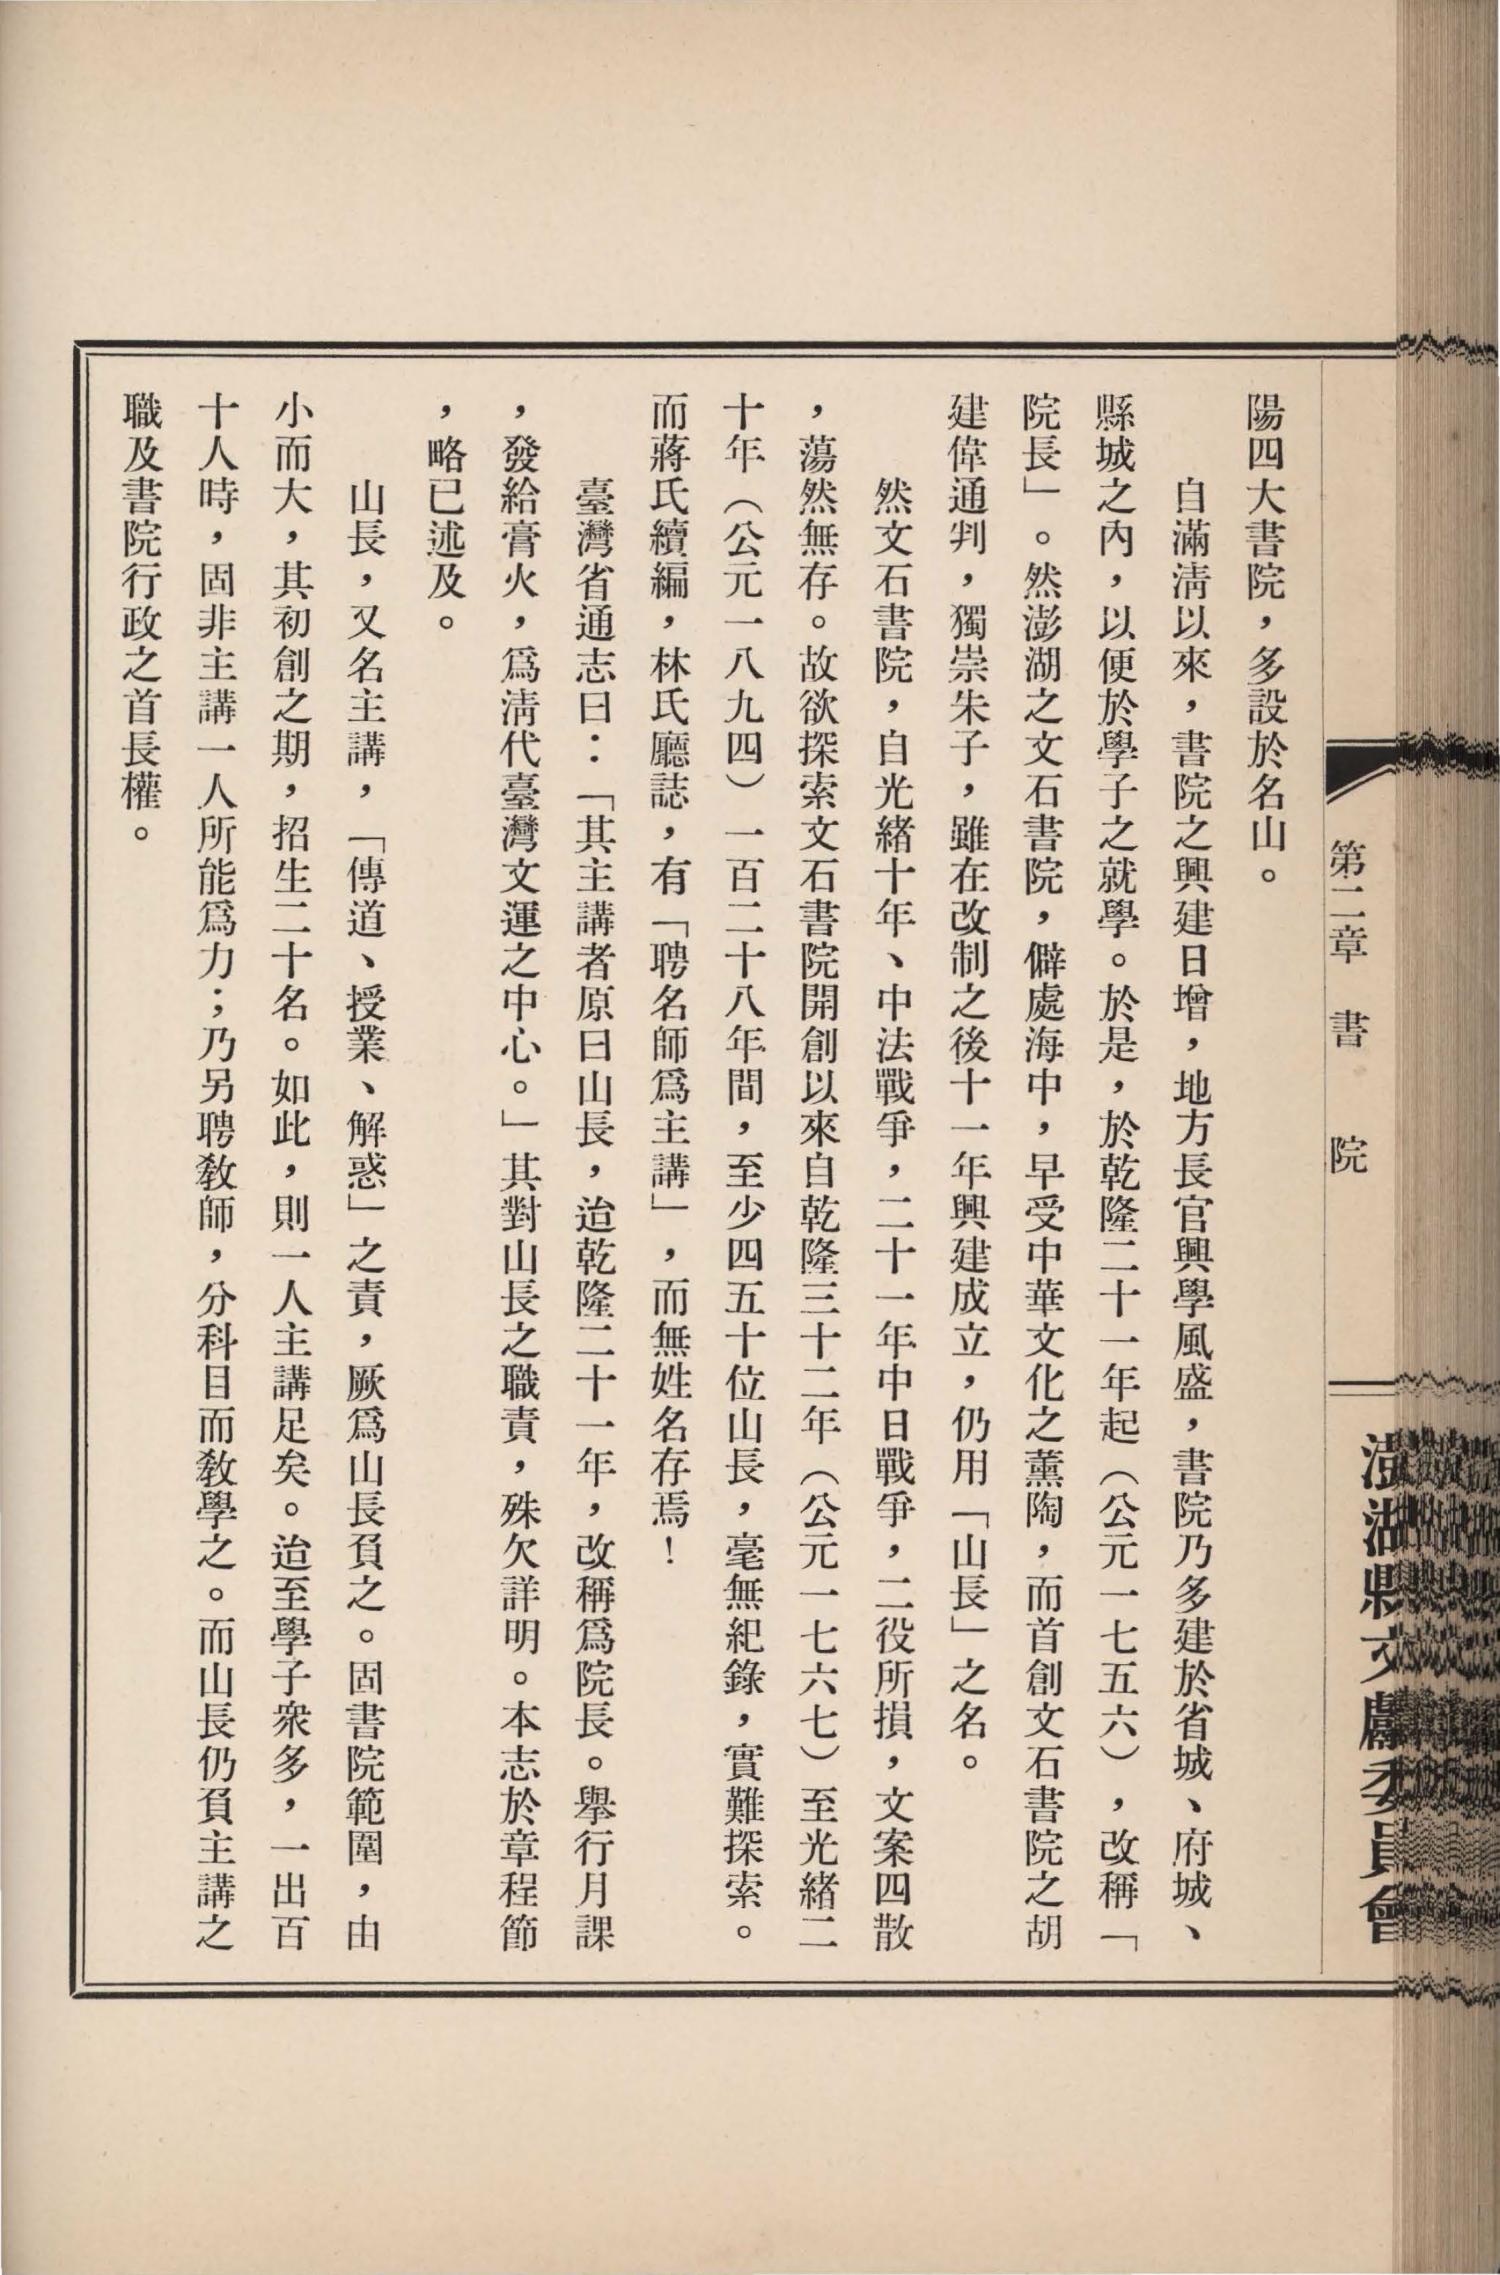 第二章　書　院
澎湖縣文獻委員會
陽四大書院，多設於名山。
自滿淸以來，書院之興建日增，地方長官興學風盛，書院乃多建於省城、府城、
縣城之內，以便於學子之就學。於是，於乾隆二十一年起（公元一七五六），改稱「
院長」。然澎湖之文石書院，僻處海中，早受中華文化之薰陶，而首創文石書院之胡
建偉通判，獨崇朱子，雖在改制之後十一年興建成立，仍用「山長」之名。
然文石書院，自光緒十年、中法戰爭，二十一年中日戰爭，二役所損，文案四散
，蕩然無存。故欲探索文石書院開創以來自乾隆三十二年（公元一七六七）至光緒二
十年（公元一八九四）一百二十八年間，至少四五十位山長，毫無紀錄，實難探索。
而蔣氏續編，林氏廳誌，有「聘名師爲主講」，而無姓名存焉！
臺灣省通志曰：「其主講者原曰山長，迨乾隆二十一年，改稱爲院長。舉行月課
，發給膏火，爲淸代臺灣文運之中心。」其對山長之職責，殊欠詳明。本志於章程節
，略已述及。
山長，又名主講，「傳道、授業、解惑」之責，厥爲山長負之。固書院範圍，由
小而大，其初創之期，招生二十名。如此，則一人主講足矣。迨至學子衆多，一出百
十人時，固非主講一人所能爲力；乃另聘教師，分科目而教學之。而山長仍負主講之
職及書院行政之首長權。